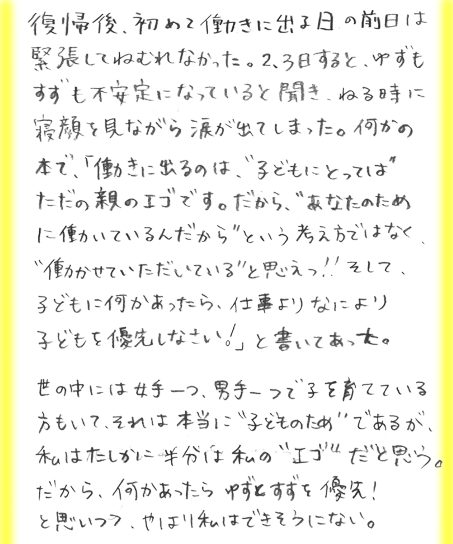 復帰後、初めて働きに出る日の前日は
緊張してねむれなかった。2、3日すると、ゆずも
すずも不安定になっていると聞き、ねる時に
寝顔を見ながら涙が出てしまった。何かの
本で、「働きに出るのは、"子どもにとっては"
ただの親のエゴです。だから、"あなたのため
に働いているんだから"という考え方ではなく、
"働かせていただいている"と思えっ!! そして、
子どもに何かあったら、仕事よりなにより
子どもを優先しなさい!」と書いてあった。
世の中には女手一つ、男手一つで子を育てている
方もいて、それは本当に"子どものため"であるが、
私はたしかに半分は私の"エゴ"だと思う。
だから、何かあったらゆずとすずを優先!
と思いつつ、やはり私はできそうにない。